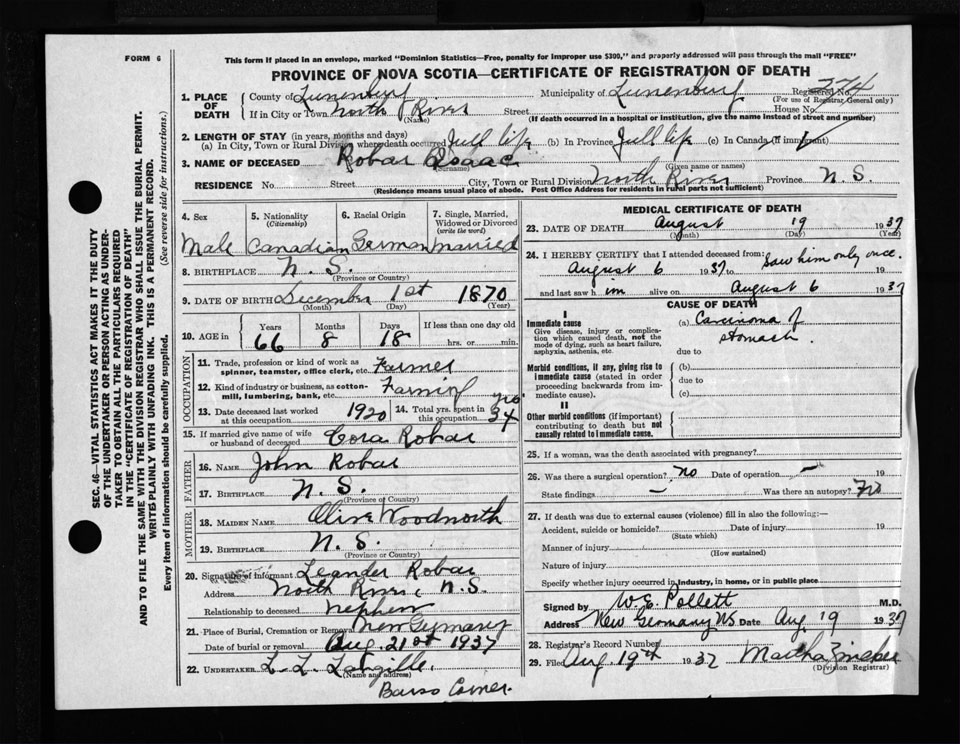 FORM 6
This form if placed in an envelope, marked "Dominion Statistics—Free, penalty for improper use $300," and properly addressed will pass through the mail "FREE"
PROVINCE OF NOVA SCOTIA—CERTIFICATE OF REGISTRATION OF DEATH
SEC. 46—VITAL STATISTICS ACT MAKES IT THE DUTY
OF THE UNDERTAKER OR PERSON ACTING AS UNDER-
TAKER TO OBTAIN ALL THE PARTICULARS REQUIRED
IN THE "CERTIFICATE OF REGISTRATION OF DEATH"
AND TO FILE THE SAME WITH THE DIVISION REGISTRAR WHO SHALL ISSUE THE BURIAL PERMIT.
WRITE PLAINLY WITH UNFADING INK. THIS IS A PERMANENT RECORD.
Every item of information should be carefully supplied. (See reverse side for instructions.)
1. PLACE OF DEATH County of Lunenburg Municipality of Lunenburg Registered No. 374
(For use of Registrar General only)
If in City or Town North River Street House No.
(Name) (If death occurred in a hospital or institution, give the name instead of street and number)
2. LENGTH OF STAY (in years, months and days)
(a) In City, Town or Rural Division where death occurred full life (b) In Province full life (c) In Canada (if immigrant)
3. NAME OF DECEASED Robar Isaac
(Surname) (Given name or names)
RESIDENCE No. Street City, Town or Rural Division North River Province N. S.
(Residence means usual place of abode. Post Office Address for residents in rural parts not sufficient)
4. Sex Male
5. Nationality (Citizenship) Canadian
6. Racial Origin German
7. Single, Married, Widowed or Divorced (write the word) Married
8. BIRTHPLACE N. S.
(Province or Country)
9. DATE OF BIRTH December 1st 1870
(Month) (Day) (Year)
10. AGE in Years 66 Months 8 Days 18 If less than one day old hrs. or min.
OCCUPATION
11. Trade, profession or kind of work as spinner, teamster, office clerk, etc. Farmer
12. Kind of industry or business, as cotton-mill, lumbering, bank, etc. Farming
13. Date deceased last worked at this occupation 1920
14. Total yrs. spent in this occupation 34 yrs
15. If married give name of wife or husband of deceased Cora Robar
FATHER
16. NAME John Robar
17. BIRTHPLACE N. S.
(Province or Country)
MOTHER
18. MAIDEN NAME Olive Woodworth
19. BIRTHPLACE N. S.
(Province or Country)
20. Signature of informant Leander Robar
Address North River, N. S.
Relationship to deceased nephew
21. Place of Burial, Cremation or Removal New Germany
Date of burial or removal Aug. 21st 1937
22. UNDERTAKER L. L. Langille
(Name and address)
Barss Corner.
MEDICAL CERTIFICATE OF DEATH
23. DATE OF DEATH August 19 1937
(Month) (Day) (Year)
24. I HEREBY CERTIFY that I attended deceased from:
August 6 1937 to saw him only once. 19
and last saw h im alive on August 6 1937
CAUSE OF DEATH
I
Immediate cause
Give disease, injury or complication which caused death, not the mode of dying, such as heart failure, asphyxia, asthenia, etc.
(a) Carcinoma of stomach.
due to
Morbid conditions, if any, giving rise to immediate cause (stated in order proceeding backwards from immediate cause).
(b)
due to
(c)
II
Other morbid conditions (if important) contributing to death but not causally related to immediate cause.
25. If a woman, was the death associated with pregnancy?
26. Was there a surgical operation? no Date of operation — 19
State findings — Was there an autopsy? no
27. If death was due to external causes (violence) fill in also the following:—
Accident, suicide or homicide? Date of injury 19
(State which)
Manner of injury
(How sustained)
Nature of injury
Specify whether injury occurred in industry, in home, or in public place
Signed by W E Pollett M.D.
Address New Germany NS Date Aug 19 1937
28. Registrar's Record Number
29. Filed Aug 19th 1937 Martha Zinck
(Division Registrar)